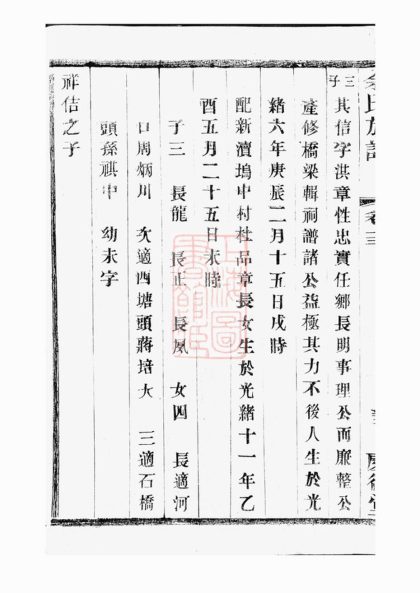 余氏族譜 卷三
三子 其信字洪章性忠實任鄉長明事理公而廉整公
產修橋梁輯祠譜諸公益極其力不後人生於光
緒六年庚辰二月十五日戌時
配新瀆塢中村杜品章長女生於光緒十一年乙
酉五月二十五日未時
子三 長龍 長正 長鳳 女四 長適河
口周炳川 次適西塘頭蔣培大 三適石橋
頭孫祺中 幼未字
祥佶之子